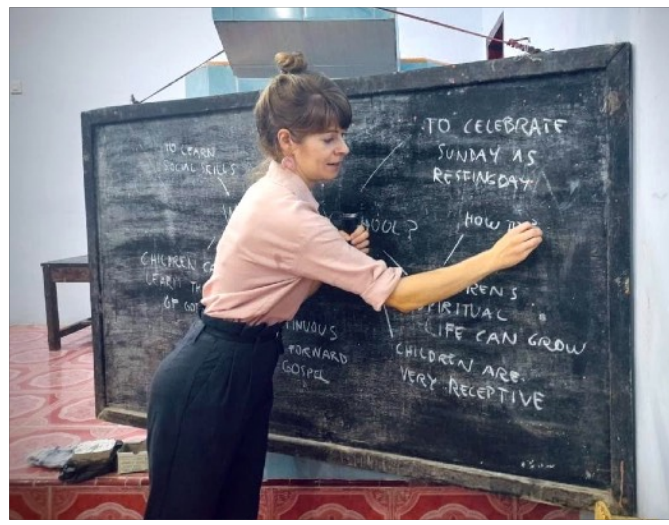 TO LEARN
SOCIAL SKILLS
TO CELEBRATE
SUNDAY AS
RESTINGDAY
OOL?
HOW
CHILDREN
LEARN TH
OF GO
RENS
SPIRITUAL
LIFE CAN GROW
TINUOUS
FORWARD
GOSPEL
CHILDREN ARE
VERY RECEPTIVE